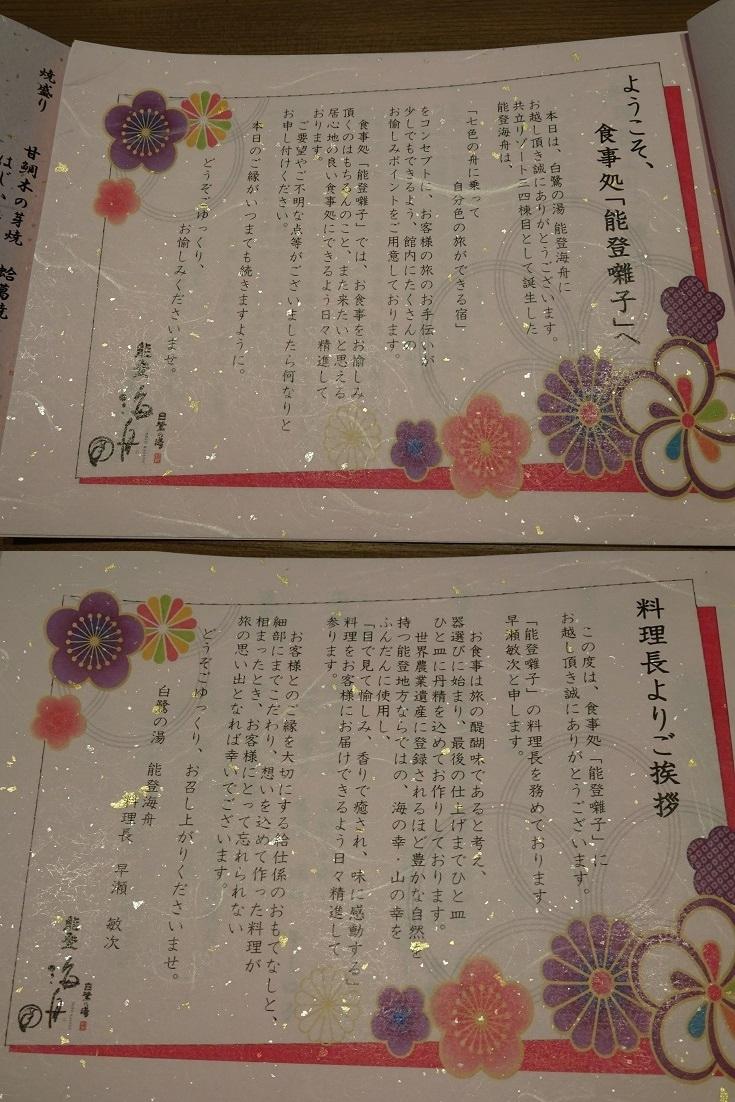 ようこそ、
食事処「能登囃子」へ
本日は、白鷺の湯 能登海舟に
お越し頂き誠にありがとうございます。
共立リゾート三四棟目として誕生した
能登海舟は、
「七色の舟に乗って
自分色の旅ができる宿」
をコンセプトに、お客様の旅のお手伝いが
少しでもできるよう、館内にたくさんの
お愉しみポイントをご用意しております。
食事処「能登囃子」では、お食事をお愉しみ
頂くのはもちろんのこと、また来たいと思える
居心地の良い食事処にできるよう日々精進して
おります。
ご要望やご不明な点等がございましたら何なりと
お申し付けください。
本日のご縁がいつまでも続きますように。
どうぞごゆっくり、
お愉しみくださいませ。
能登
海舟
白鷺の湯
焼盛り
甘鯛木の芽焼
料理長よりご挨拶
この度は、食事処「能登囃子」に
お越し頂き誠にありがとうございます。
「能登囃子」の料理長を務めております
早瀬敏次と申します。
お食事は旅の醍醐味であると考え、
器選びに始まり、最後の仕上げまでひと皿
ひと皿に丹精を込めてお作りしております。
世界農業遺産に登録されるほど豊かな自然を
持つ能登地方ならではの、海の幸・山の幸を
ふんだんに使用し、
「目で見て愉しみ、香りで癒され、味に感動する」
料理をお客様にお届けできるよう日々精進して
参ります。
お客様とのご縁を大切にする給仕係のおもてなしと、
細部にまでこだわり、想いを込めて作った料理が
相まったとき、お客様にとって忘れられない
旅の思い出となれば幸いでございます。
どうぞごゆっくり、お召し上がりくださいませ。
白鷺の湯 能登海舟
料理長 早瀬 敏次
能登
海舟
白鷺の湯